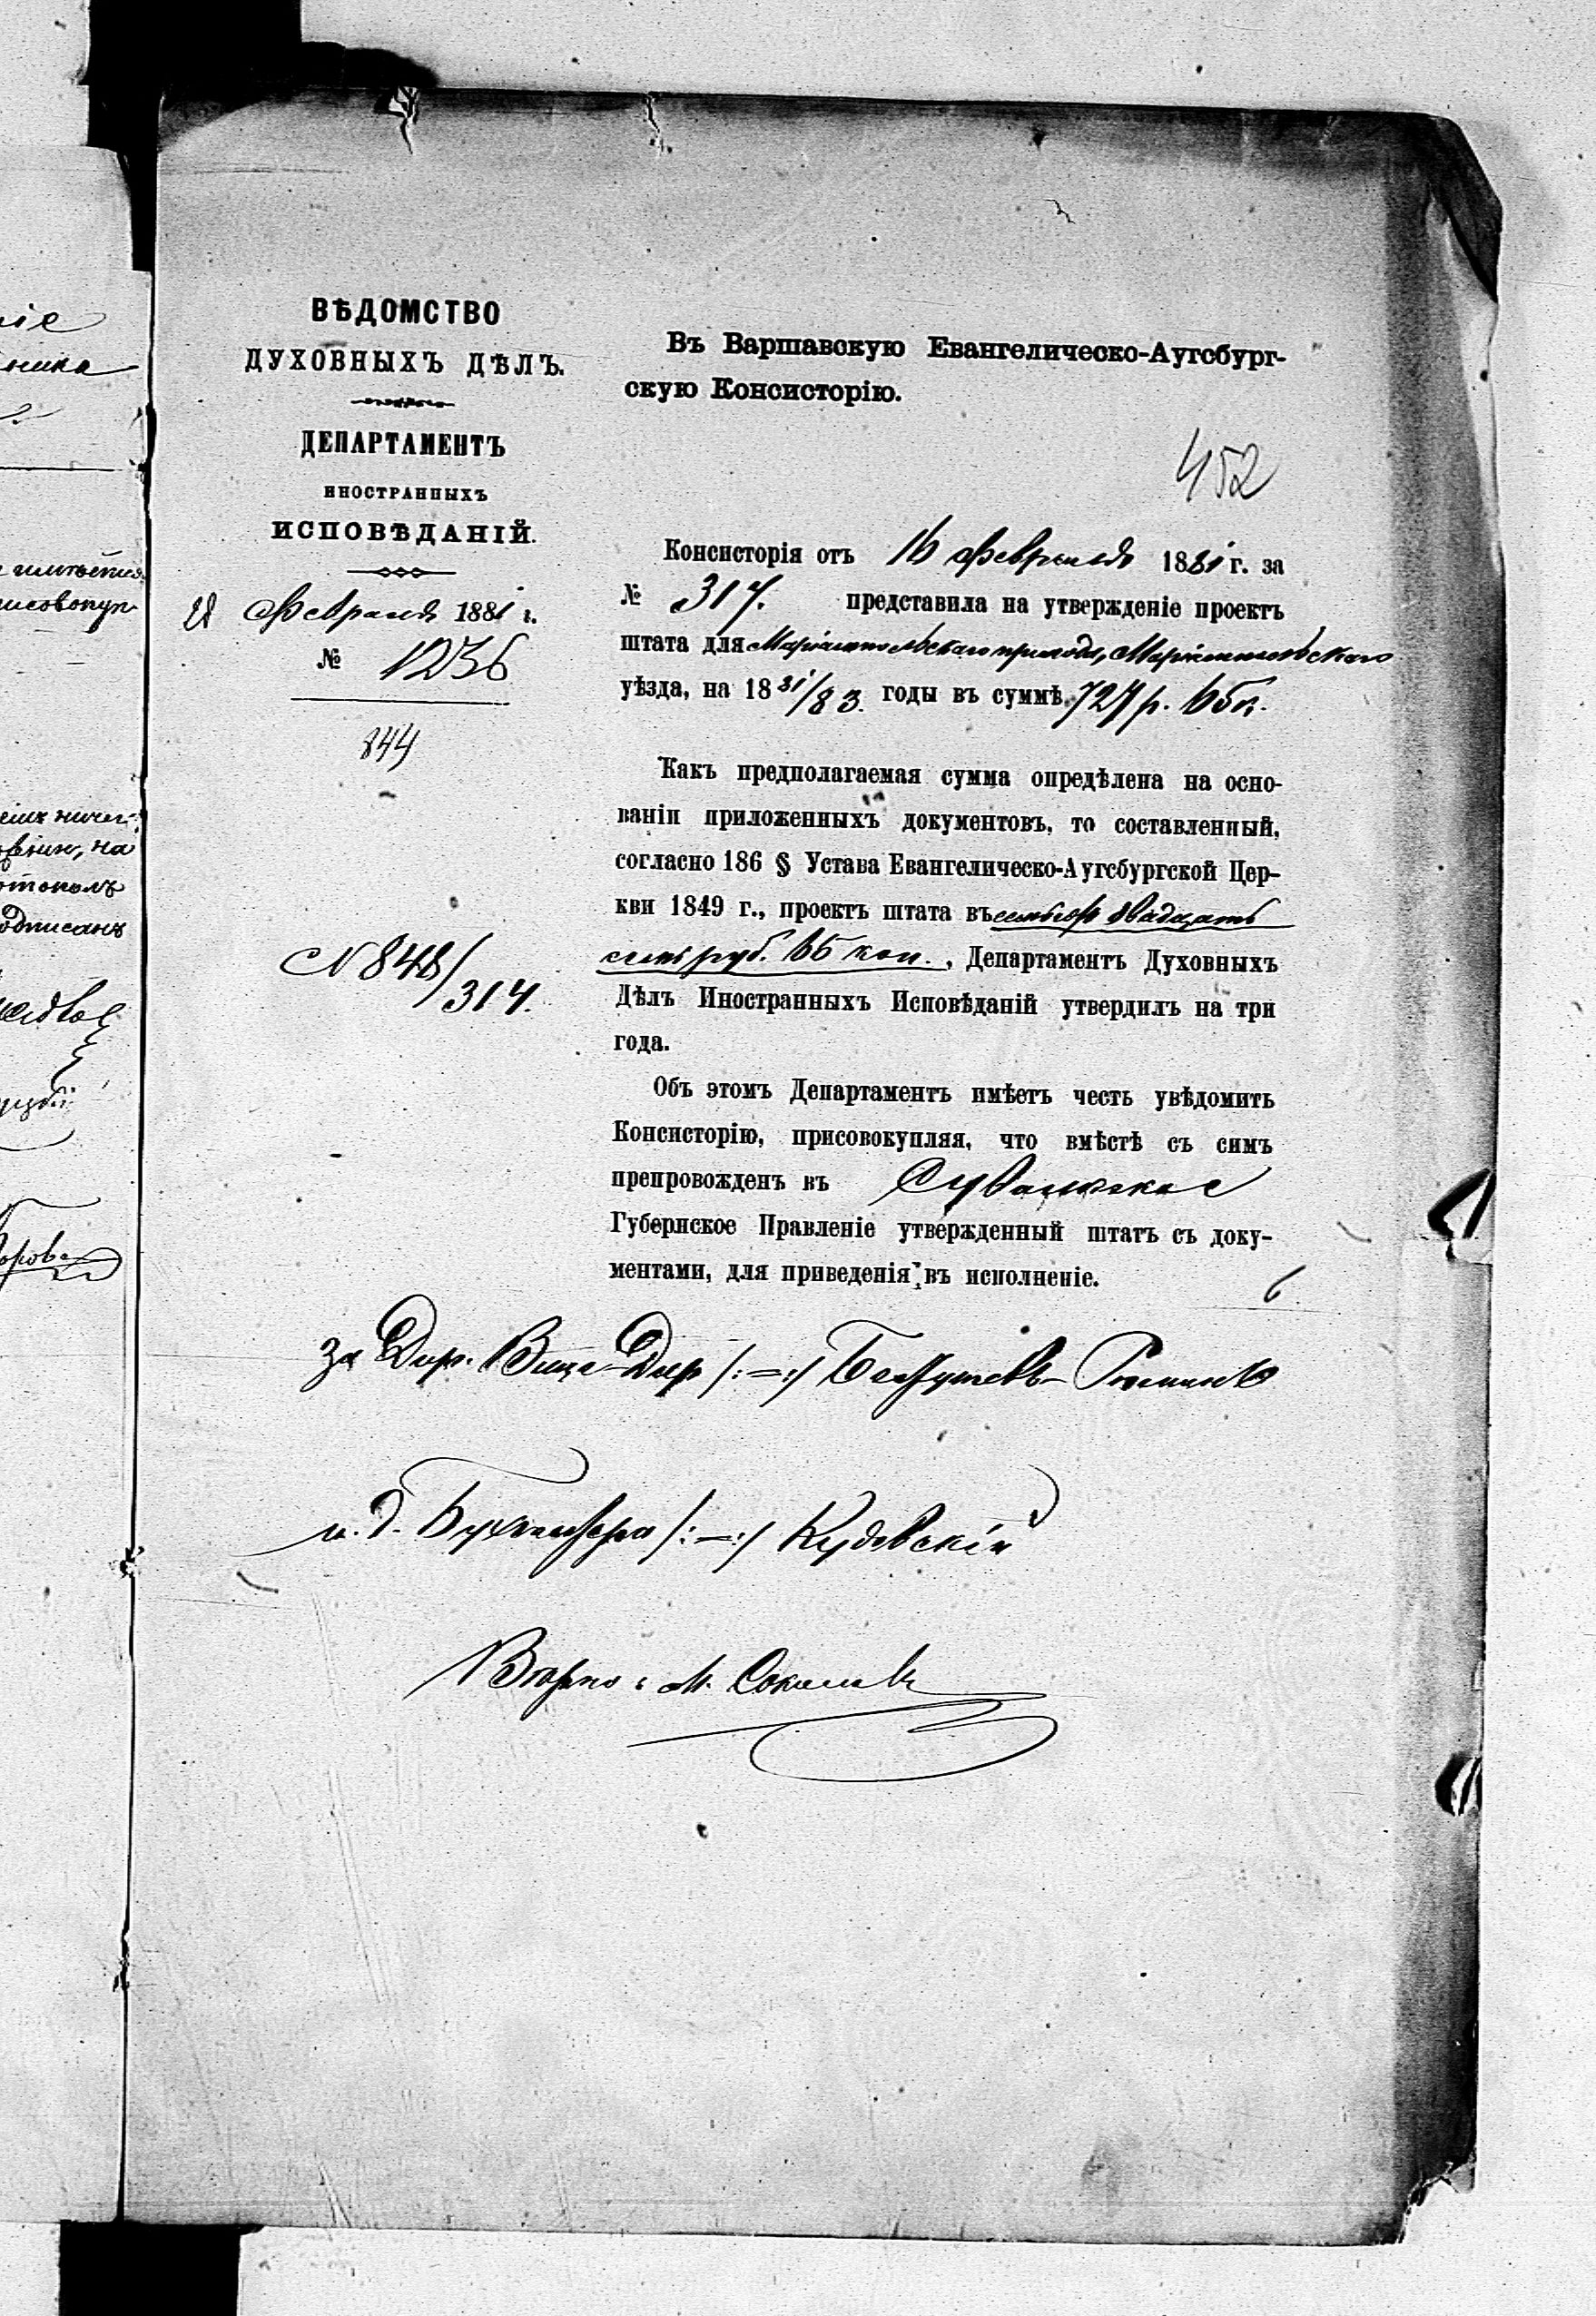 ВѢДОМСТВО
ДУХОВНЫХЪ ДѢЛЪ.
ДЕПАРТАМЕНТЪ
ИНОСТРАННЫХЪ
ИСПОВѢДАНІЙ.
Февраля 1881 г.
№ 1236
844
N 848/314.
Въ Варшавскую Евангелическо-Аугсбург-
скую Консисторію.
452
Консисторія отъ 16 Февраля 1881 г. за
№ 314. представила на утвержденіе проектъ
штата для Маріампольскаго прихода, Маріампольскаго
уѣзда, на 1881/83. годы въ суммѣ 727 р. 65 к.
Какъ предполагаемая сумма опредѣлена на осно-
ваніи приложенныхъ документовъ, то составленный,
согласно 186 § Устава Евангелическо-Аугсбургской Цер-
кви 1849 г., проектъ штата въ семьсотъ двадцать
семь руб. 65 коп., Департаментъ Духовныхъ
Дѣлъ Иностранныхъ Исповѣданій утвердилъ на три
года.
Объ этомъ Департаментъ имѣетъ честь увѣдомить
Консисторію, присовокупляя, что вмѣстѣ съ симъ
препровожденъ въ Сувалкское
Губернское Правленіе утвержденный штатъ съ доку-
ментами, для приведенія въ исполненіе.
за Дир. Вице-Дир /:—:/ Бестужевъ-Рюминъ
и. д. Бухгалтера /:—:/
Вѣрно: М. Соколовъ
ніе
ника
отоколъ
одписанъ